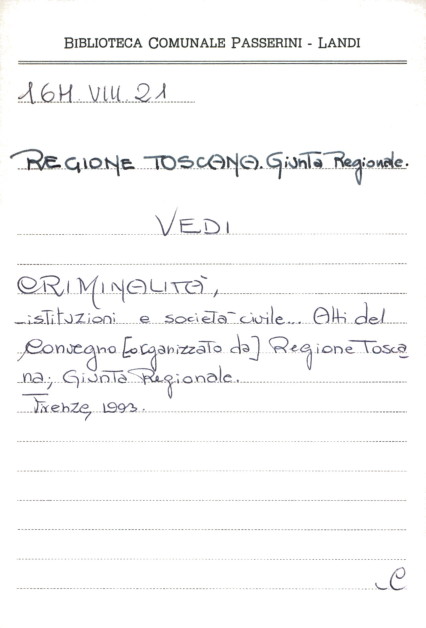 BIBLIOTECA COMUNALE PASSERINI - LANDI
16H.VIII.21
REGIONE TOSCANA. Giunta Regionale.
VEDI
CRIMINALITÀ,
istituzioni e società civile... Atti del
Convegno [organizzato da] Regione Tosca
na; Giunta Regionale.
Firenze, 1993.
C